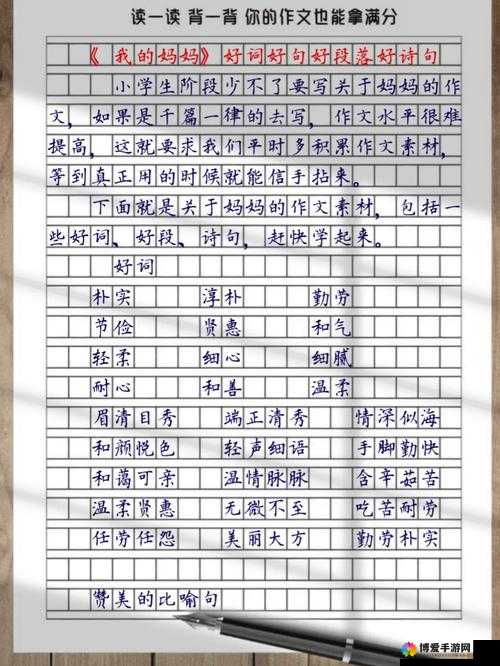 读一读 背一背 你的作文也能拿满分
《我的妈妈》好词好句好段落好诗句
小学生阶段少不了要写关于妈妈的作
文，如果是千篇一律的去写，作文水平很难
提高，这就要求我们平时多积累作文素材，
等到真正用的时候就能信手拈来。
下面就是关于妈妈的作文素材，包括一
些好词、好段、诗句，赶快学起来。
好词
朴实 淳朴 勤劳
节俭 贤惠 和气
轻柔 细心 细腻
耐心 和善 温柔
眉清目秀 端正清秀 情深似海
和颜悦色 轻声细语 手脚勤快
和蔼可亲 温情脉脉 含辛茹苦
温柔贤惠 无微不至 吃苦耐劳
任劳任怨 美丽大方 勤劳朴实
赞美的比喻句
博爱手游网